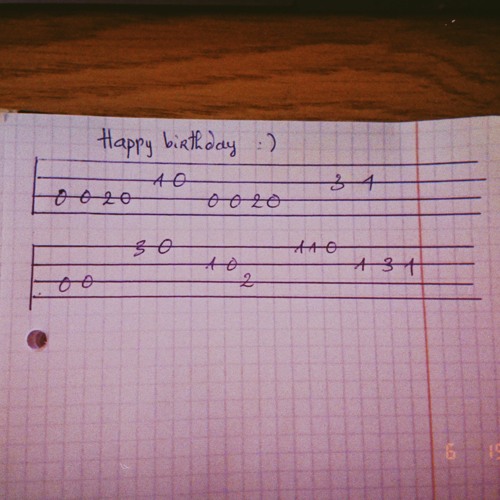 Happy birthday :)
1 0 3 1
0 0 2 0 0 0 2 0
3 0 1 1 0
1 0 1 3 1
0 0 2
6 19